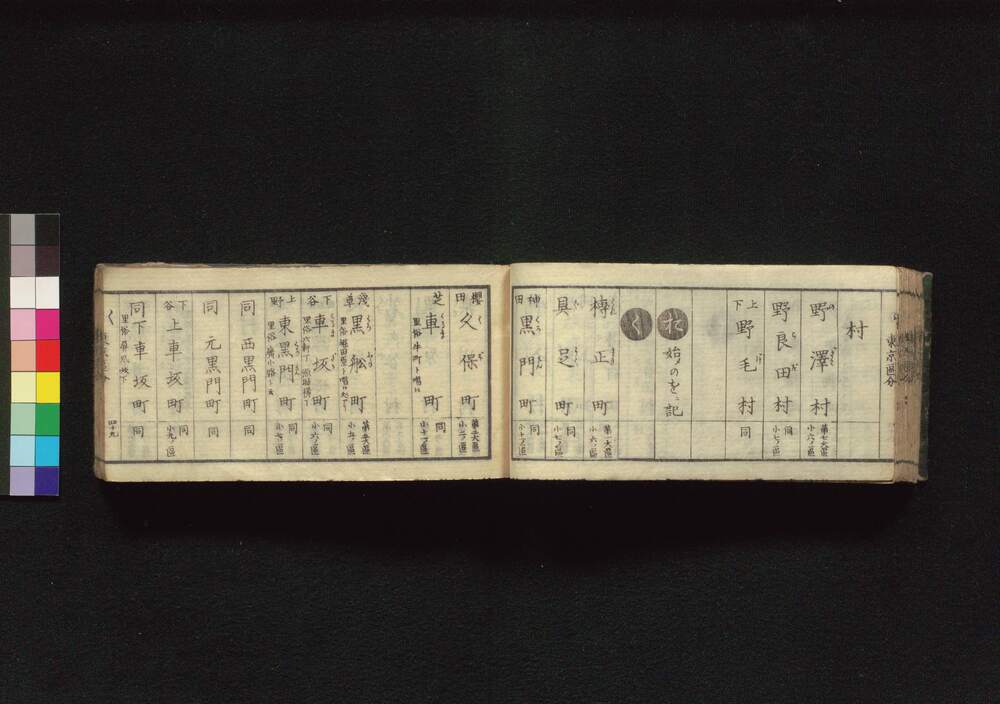 東京區分
村
野澤村 第七大區 小六ノ區
野良田村 同 小七ノ區
上下 野毛村 同
お 始メのをニ記
く
槫正町 第一大區 小六ノ區
具足町 同 小七ノ區
神田 黒門町 同 小十一ノ區
櫻田 久保町 第二大區 小三ノ區
芝 車町 同
里俗牛町ト唱ふ
淺草 黒舩町 第五大區
下谷 車坂町 同 小六ノ區
上野 東黒門町 同
里俗廣小路ト云
同 西黒門町 同
同 元黒門町 同
下谷 上車坂町 同 小九ノ區
同 下車坂町 同
里俗屏風坂下
く
四十九